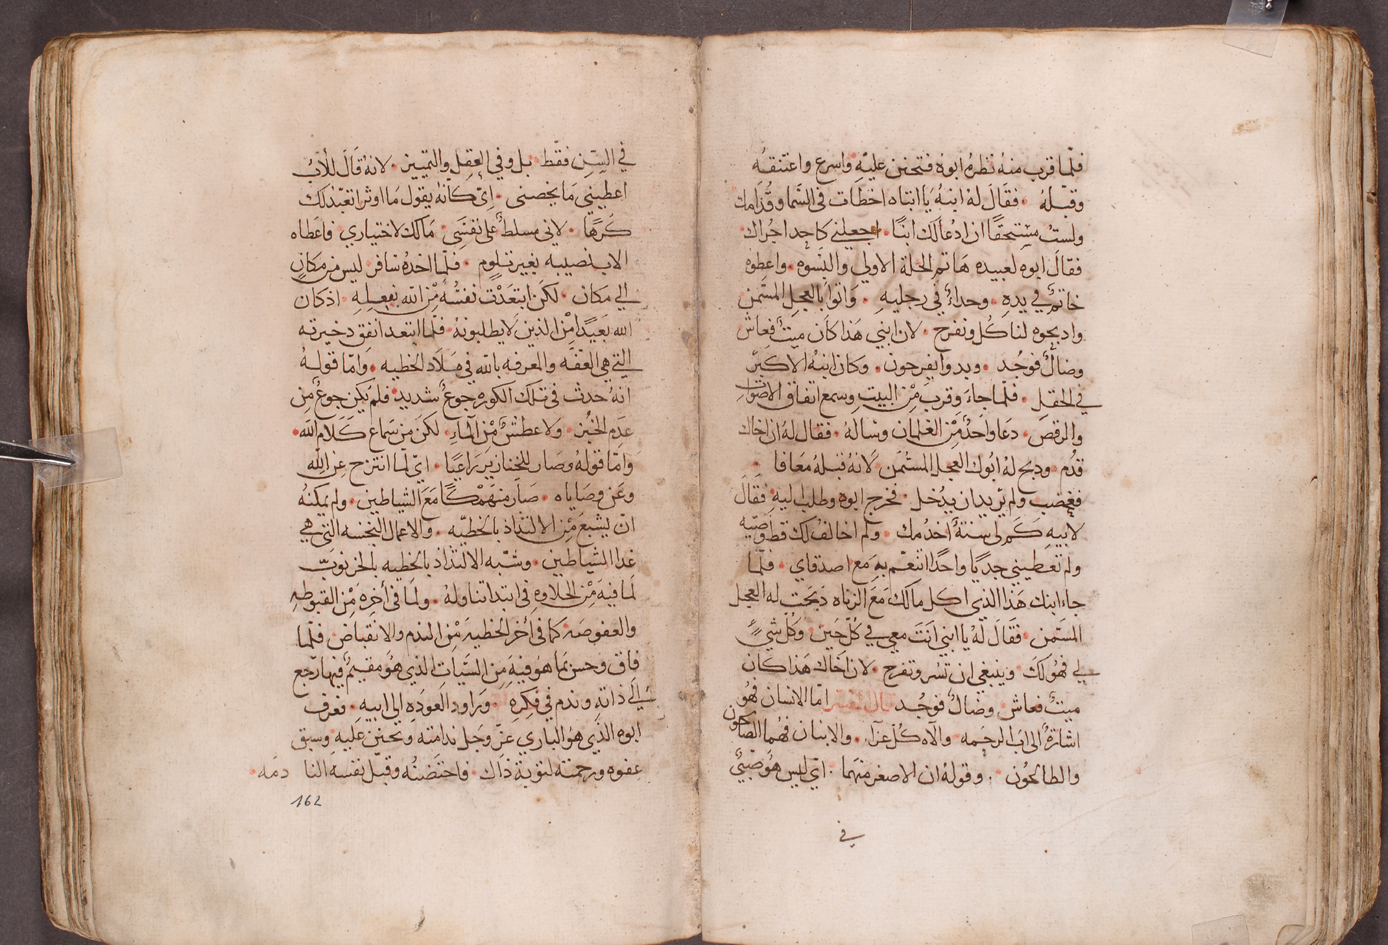 فلما قرب منه نظره ابوه فتحنن عليه واسرع واعتنقه
وقبله فقال له ابنه يا ابتاه اخطات في السما وقدامك
ولست مستحقا ان ادعا لك ابنا اجعلني كاحد اجراك
فقال ابوه لعبيده هاتم الحلة الاولي والبسوه واعطوه
خاتم في يده وحداء في رجليه واتوا بالعجل المسمن
واذبحوه لناكل ونفرح لان ابني هذا كان ميت فعاش
وضال فوجد وبدوا يفرحون وكان ابنه الاكبر
في الحقل فلما جاء وقرب من البيت وسمع اتفاق الاصوات
والرقص دعا واحد من الغلمان وساله فقال له ان اخاك
قدم ودبح له ابوك العجل المسمن لانه قبله معافا
فغضب ولم يريد ان يدخل فخرج ابوه وطلب اليه فقال
لابيه كم لي سنة اخدمك ولم اخالف لك قط وصيه
ولم تعطيني جديا واحدا اتنعم به مع اصدقاي فلما
جاء ابنك هذا الذي اكل مالك مع الزناه دبحت له العجل
المسمن فقال له يا ابني انت معي في كل حين وكل شي
لي فهو لك وينبغي ان تسر وتفرح لان اخاك هذا كان
ميت فعاش وضال فوجد قال المفسر اما الانسان فهو
اشارة الى اب الرحمه والاه كل عزاء والابنان فهما الصالحون
والطالحون وقوله ان الاصغر منهما اي ليس هو صبي
في
في السن فقط بل وفي العقل والتمييز لانه قال للاب
اعطيني ما يخصني اي كانه يقول ما اوثر اتعبد لك
كرها لاني مسلط على نفسي مالك لاختياري فاعطاه
الاب نصيبه بغير تلوم فلما اخده سافر ليس من مكان
الى مكان لكن ابتعدت نفسه من الله بفعله اذ كان
الله بعيدا من الذين لا يطلبونه فلما ابتعد انفق دخيرته
التي هي العفه والمعرفه بالله في بلاد الخطيه واما قوله
انه حدث في تلك الكوره جوع شديد فلم يكن جوع من
عدم الخبز ولا عطش من الماء لكن من سماع كلام الله
واما قوله وصار للخنازير راعيا اي لما انتزح عن الله
وعن وصاياه صار منهمكا مع الشياطين ولم يمكنه
ان يشبع من الالتذاذ بالخطيه والاعمال النجسه التي هي
غدا الشياطين وشبه الالتذاذ بالخطيه بالخرنوب
لما فيه من الحلاوه في ابتدا تناوله ولما في أخره من القبوطه
والعفوصه كما في أخر الخطيه من الندم والانقباض فلما
فاق وحس بما هو فيه من السيات الذي هو مقيم فيها رجع
الى ذاته وندم في فكره وراود العوده الى ابيه فعرف
ابوه الذي هو الباري عز وجل ندامته وتحنن عليه وسبق
عفوه ورحمته لتوبة ذاك فاحتضنه وقبل نفسه النادمه
162